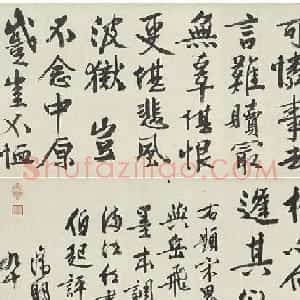 可憐事去
言難贖冣
無辜堪恨
更堪悲風
波獄豈
不念中原
蹙豈不恤
逢其欲
右題宋思
與岳飛
墨本調
滿江紅書
伯起評
徵明
Shufaziliao.com